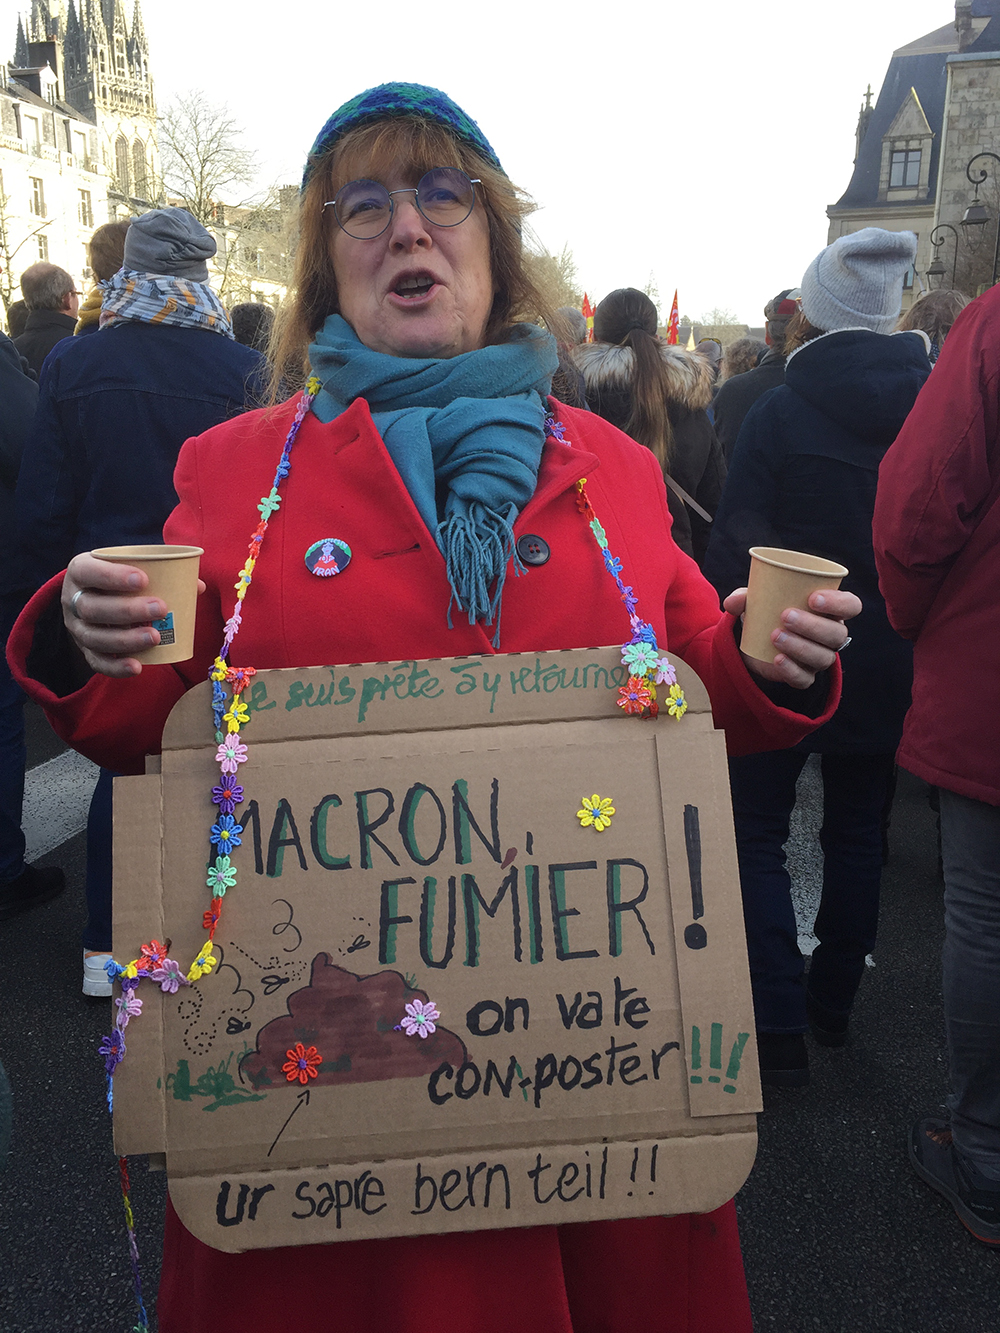 IRAN
e suis prête à y retourne
MACRON,
FUMIER !
on va te
comPoster !!!
ur sapre bern teil !!